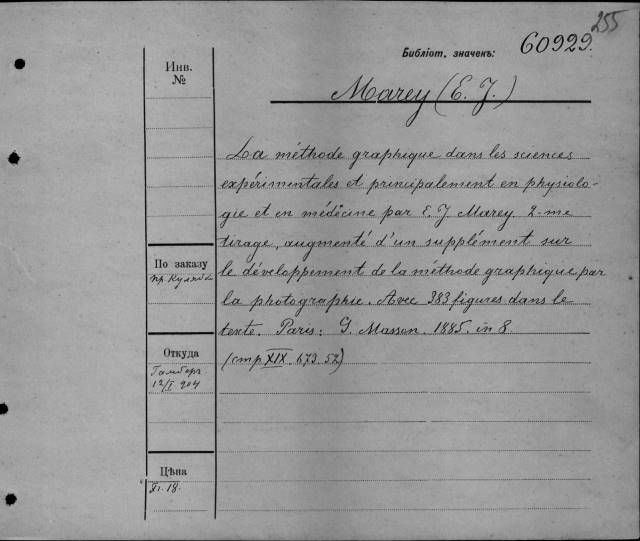 255
Библіот. значекъ: 60929.
Инв.
№
Marey (E. J.)
La méthode graphique dans les sciences
expérimentales et principalement en physiolo-
gie et en médecine par E. J Marey. 2-me
tirage, augmenté d'un supplément sur
le développement de la méthode graphique par
la photographie. Avec 383 figures dans le
texte. Paris: G. Masson. 1885. in 8.
(стр XIX. 673. 52)
По заказу
пр. Кулябко
Откуда
Гамберг.
12/I 904
Цѣна
18.